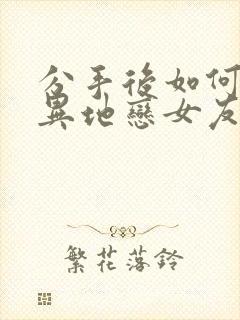 分手後如何
異地戀女友
繁花落鈴